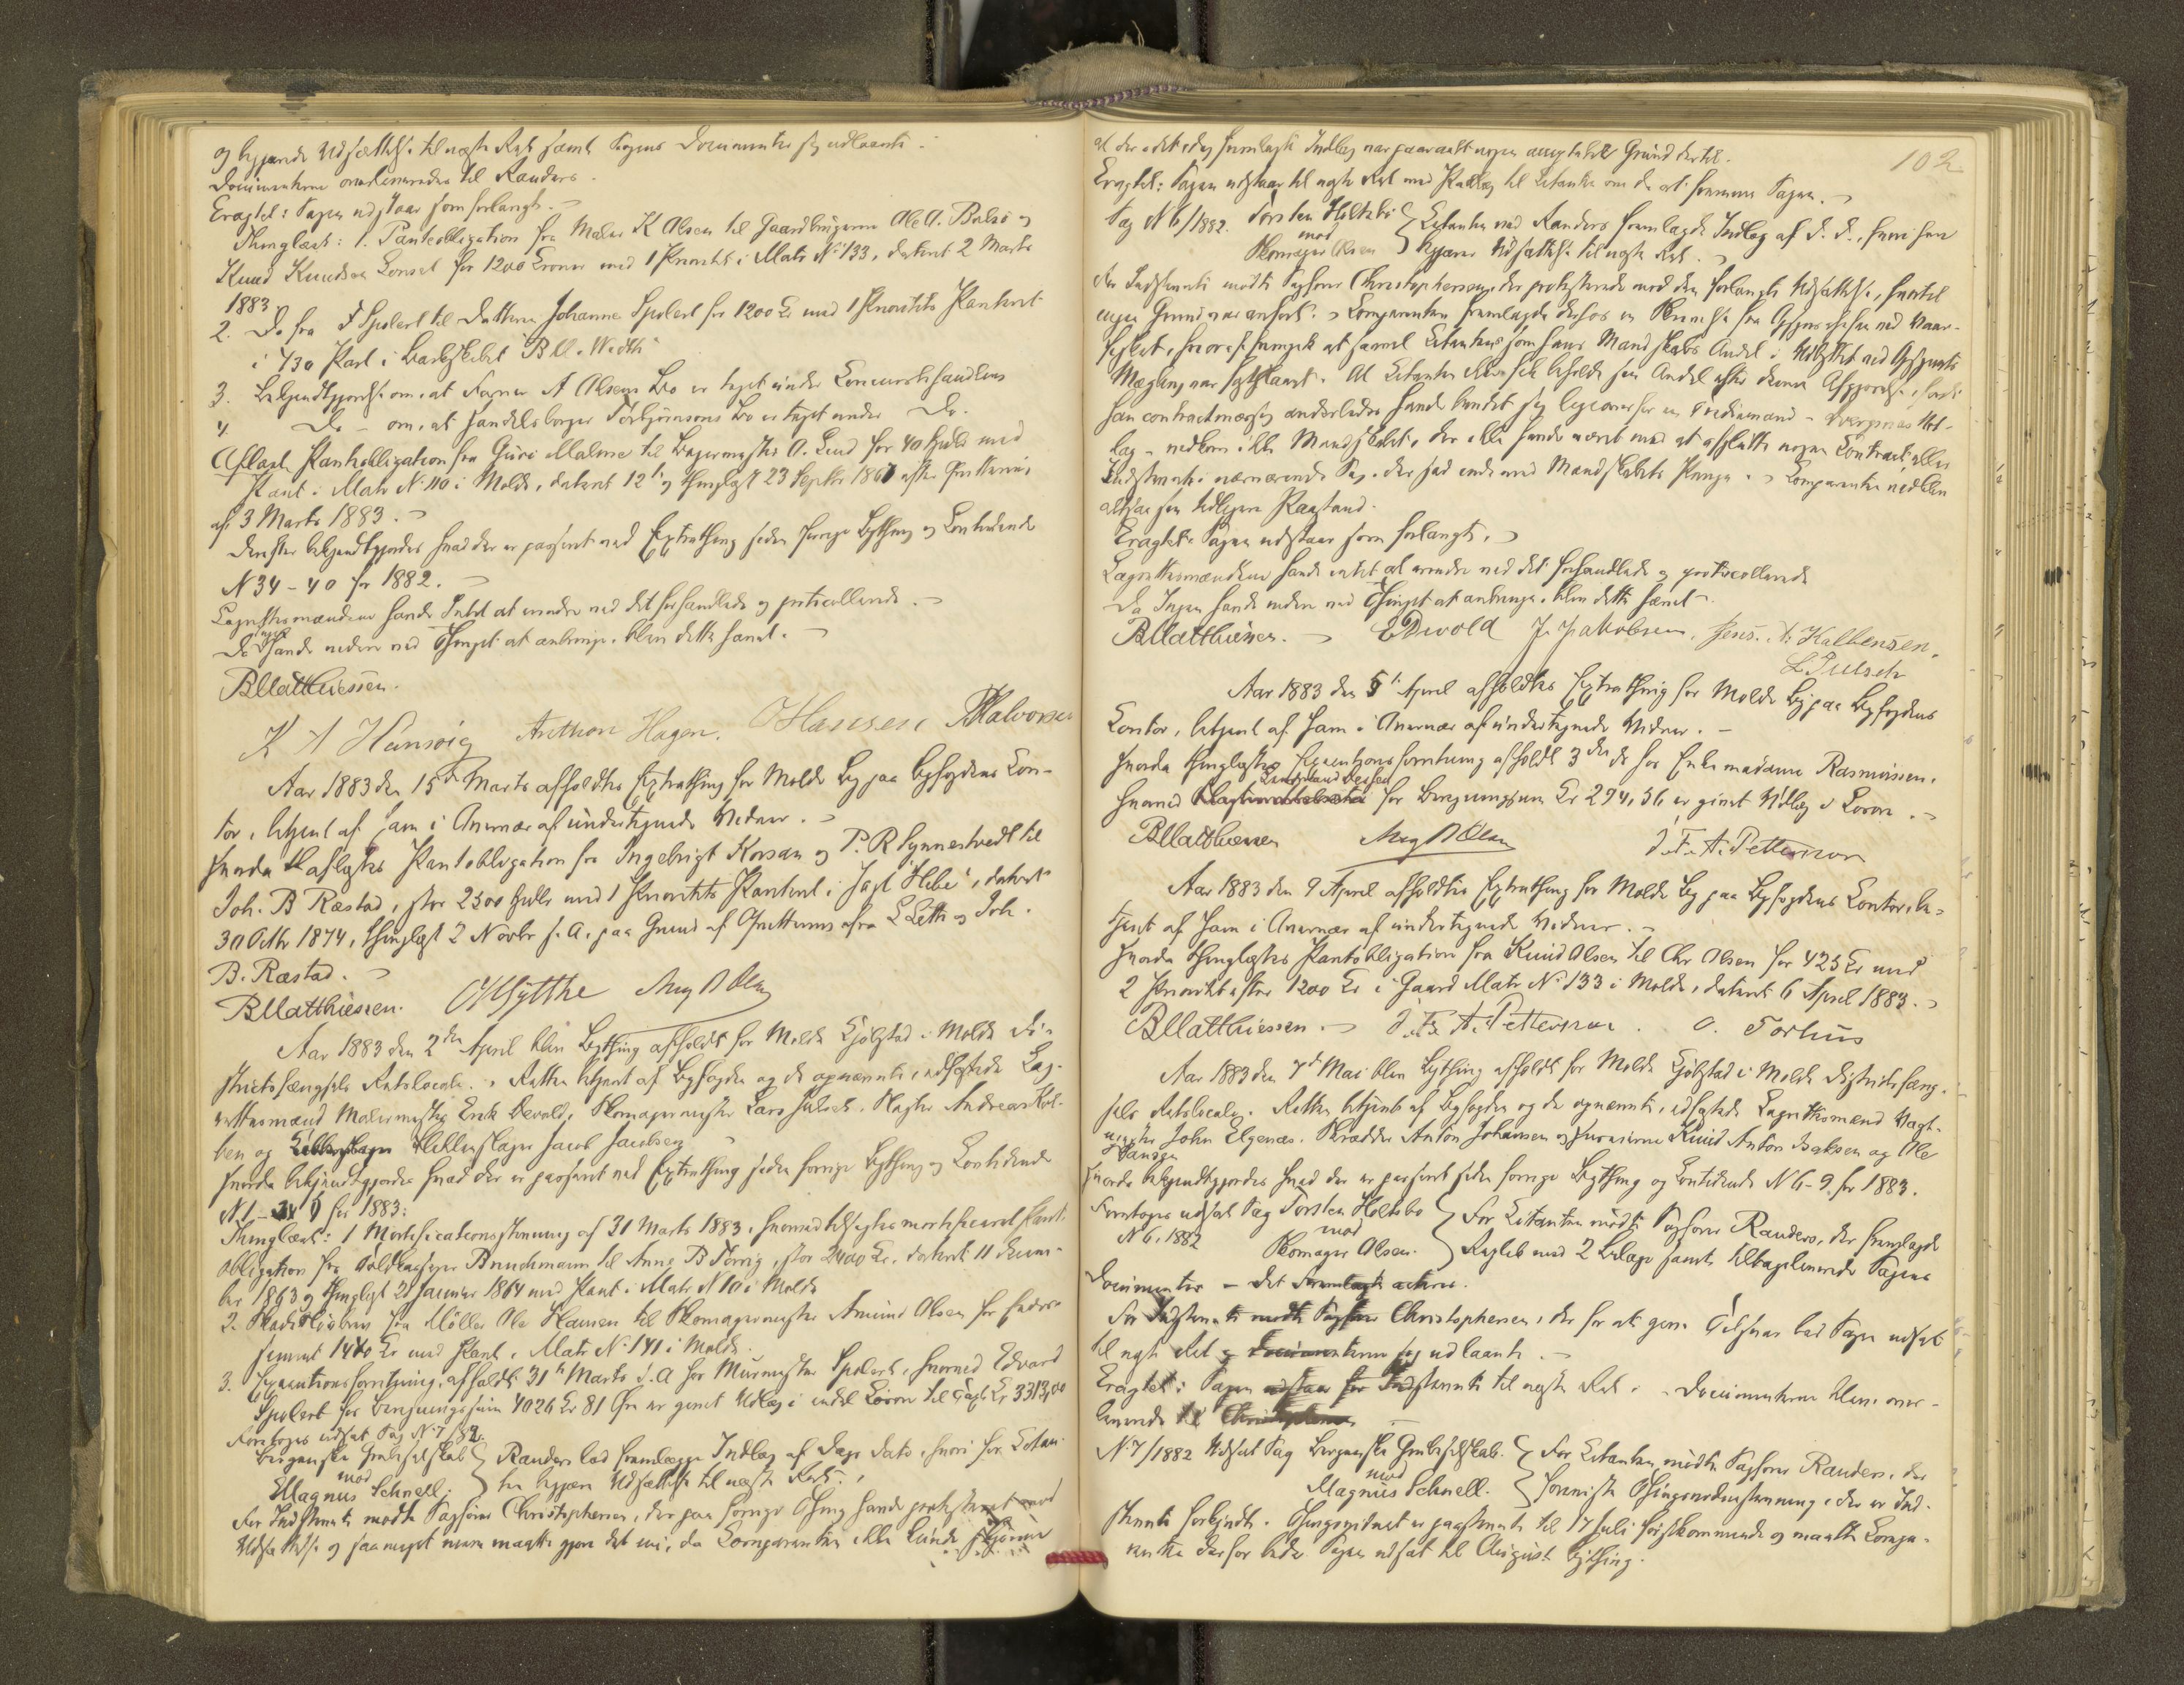 og begjærede Udsættelse til næste Ret samt Sagens Documenter sig udlaante.
Documenterne overleveredes til Randers.
Eragtet: Sagen udstaar som forlangt.
Thinglæst: 1. Panteobligation fra Maler K Olsen til Gaardbrugerne Ole A. Bolsø og
Knud Knudsen Lonset for 1200 Kroner med 1 Prioritet i Matr. N. 133, dateret 2 Marts
1883
2. Do fra F Spolert til Datteren Johanne Spolert for 1200 Kr med 1 Prioritets Panteret
i 7/30 Part i Barkskibet "B M. Width"
3. Bekjendtgjørelse om, at Farver A Olsens Bo er taget under Concursbehandling
4 Do - om, at Handelsborger Torbjørnsens Bo er taget under Do.
Aflæst Panteobligation fra Guri Malme til Bagermester O. Lund for 40 Spdlr med
Pant i Matr N. 110 i Molde, dateret 12te og thinglyst 23 Septbr 1867 efter Qvittering
af 3 Marts 1883.
Derefter bekjendtgjordes hvad der er passeret ved Extrathing siden forrige Bything og Lovtidende
N 34 - 40 for 1882.
Lagrettesmændene havde Intet at erindre ved det forhandlede og protocollerede.
Da Ingen havde videre ved Thinget at anbringe, blev dette hævet.
B Matthiessen.
K A Hansvig Anthon Hagen. O Hansen P Halvorsen
Aar 1883 den 15de Marts afholdtes Extrathing for Molde By paa Byfogdens Con-
tor, betjent af ham i Overvær af undertegnede Vidner.
Hvorda aflystes Panteobligation fra Ingebrigt Korsan og P. R Lynnestvedt til
Joh. B Ræstad, stor 2500 Spdlr med 1 Prioritets Panteret i Jagt "Hebe", dateret
30 Octbr 1874, thinglyst 2 Novbr s. A. paa Grund af Qvittering fra L Sette og Joh.
B. Ræstad.
B Matthiessen. O Hjytthe Aug A Olsen
Aar 1883 den 2den April blev Bything afholdt for Molde Kjøbstad i Molde Di-
stricts fængsels Retslocale. Retten betjent af Byfogden og de opnævnte, edfæstede Lag-
rettesmænd Malermester Erik Devold, Skomagermester Lars Julseth, Slagter Andreas Kol-
ben og Blikkenslager Jacob Jacobsen
Hvorda bekjendtgjordes hvad der er passeret ved Extrathing siden forrige Bything og Lovtidende
N 1 - 5 for 1883:
Thinglæst: 1 Mortificationsstevning af 31 Marts 1883, hvorved tilsigtes mortificeret Pante-
obligation fra Toldkasserer Bruchmann til Anne B Torrig, stor 2400 Kr. dateret 11 Decem-
ber 1863 og thinglyst 21 Januar 1864 med Pant i Matr N 10 i Molde
2. Skadesløsbrev fra Møller Ole Hansen til Skomagermester Amund Olsen for Endos-
sement 1440 Kr med Pant i Matr N. 141 i Molde.
3. Executionsforretning, afholdt 31te Marts d. A hos Murmester Spolert, hvorved Edvard
Spolert for Beregningssum 4026 Kr 81 Øre er gjort Udlæg i endel Løsøre til Taxt Kr 3313,00
Foretoges udsat Sag N. 7/82.
Bergenske Grubeselskab
mod
Magnus Schnell;
Randers lod fremlægge Indlæg af Dags Dato, hvori for Citan-
ten begjæres Udsættelse til næste Ret.
For Indstevnte mødte Sagfører Christophersen, der paa forrige Thing havde protesteret mod
Udsættelse og saameget mere maatte gjøre det nu, da Comparenten ikke kunde skjønne
102
at der i det idag fremlagte Indlæg var paaraabt nogen antagelig Grund dertil.
Eragtet: Sagen udstaar til næste Ret med Paalæg til Citanten om da at fremme Sagen.
Sag N 6/1882. Torsten Holtebø
mod
Skomager Olsen
Citanten ved Randers fremlagde Indlæg af D. D., hvori han
begjærer Udsættelse til næste Ret.
For Indstevnte mødte Sagfører Christophersen, der protesterede mod den forlangte Udsættelse, hvortil
ingen Grund var anført. Comparenten fremlagde derhos en Skrivelse fra Opsynschefen ved Vaar-
fisket, hvoraf fremgik at saavel Citantens som hans Mandskabs Andel i Udbyttet ved Opsynets
Mægling var fastslaaet. At Citanten ikke fik beholde sin Andel efter denne Afgjørelse, fordi
han contractmæssig anderledes havde bundet sig ligeoverfor en Trediemand - Overgnes Ud-
lag - vedkom ikke Mandskabet, der ikke havde været med at afslutte nogen Contract eller
Indstevnte i nærværende Sag, der sad inde med Mandskabets Penge. Comparenten nedlagde
altsaa sin tidligere Paastand.
Eragtet: Sagen udstaar som forlangt.
Lagrettesmændene havde intet at erindre ved det forhandlede og protocollerede
Da Ingen havde videre ved Thinget at anbringe, blev dette hævet.
B Matthiessen. E Devold J. Jakobsen. Jens. A. Kalbensen.
L Julseth
Aar 1883 den 5te April afholdtes Extrathing for Molde By paa Byfogdens
Contor, betjent af ham i Overvær af undertegnede Vidner.
Hvorda thinglystes Executionsforretning afholdt 3die ds hos Enkemadame Rasmussen,
hvorved for Beregningssum Kr 294,56, er givet Udlæg i Løsøre.
B Matthiessen Aug A Olsen J. F. A. Petterson
Aar 1883 den 9 April afholdtes Extrathing for Molde By paa Byfogdens Contor, be-
tjent af ham i Overvær af undertegnede Vidner.
Hvorda thinglystes Panteobligation fra Knud Olsen til Chr Olsen for 425 Kr med
2 Prioritet efter 1200 Kr i Gaard Matr N. 133 i Molde, dateret 6 April 1883.
B Matthiessen. J. F. A. Petterson. O. Forhus
Aar 1883 den 7de Mai blev Bything afholdt for Molde Kjøbstad i Molde Districtsfæng-
sels Retslocale. Retten betjent af Byfogden og de opnævnte, edfæstede Lagrettesmænd Vagt-
mester John Elgenæs, Skrædder Anton Johansen og Huseierne Knud Anton Isaksen og Ole
Hansen
Hvorda bekjendtgjordes hvad der er passeret siden forrige Bything og Lovtidende N 6 - 9 for 1883.
Foretoges udsat Sag Torsten Holtebø
N 6, 1882 mod
Skomager Olsen.
For Citanten mødte Sagfører Randers, der fremlagde
Replik med 2 Bilage samt tilbageleverede Sagens
Documenter - det fremlagte acteres.
For Indstevnte mødte Sagfører Christophersen, der for at give Tilsvar bad Sagen udsat
til næste Ret og Documenterne sig udlaante.
Eragtet: Sagen udstaar for Indstevnte til næste Ret. Documenterne blev over-
leverede til Christophersen
N. 7/1882 Udsat Sag Bergenske Grubeselskab.
mod
Magnus Schnell.
For Citanten mødte Sagfører Randers, der
foreviste Thingsvidnestevning, der er Ind-
stevnte forkyndt. Thingsvidnet er paastevnt til 17 Juli førstkommende og maatte Compa-
renten derfor bede Sagen udsat til August Bything.